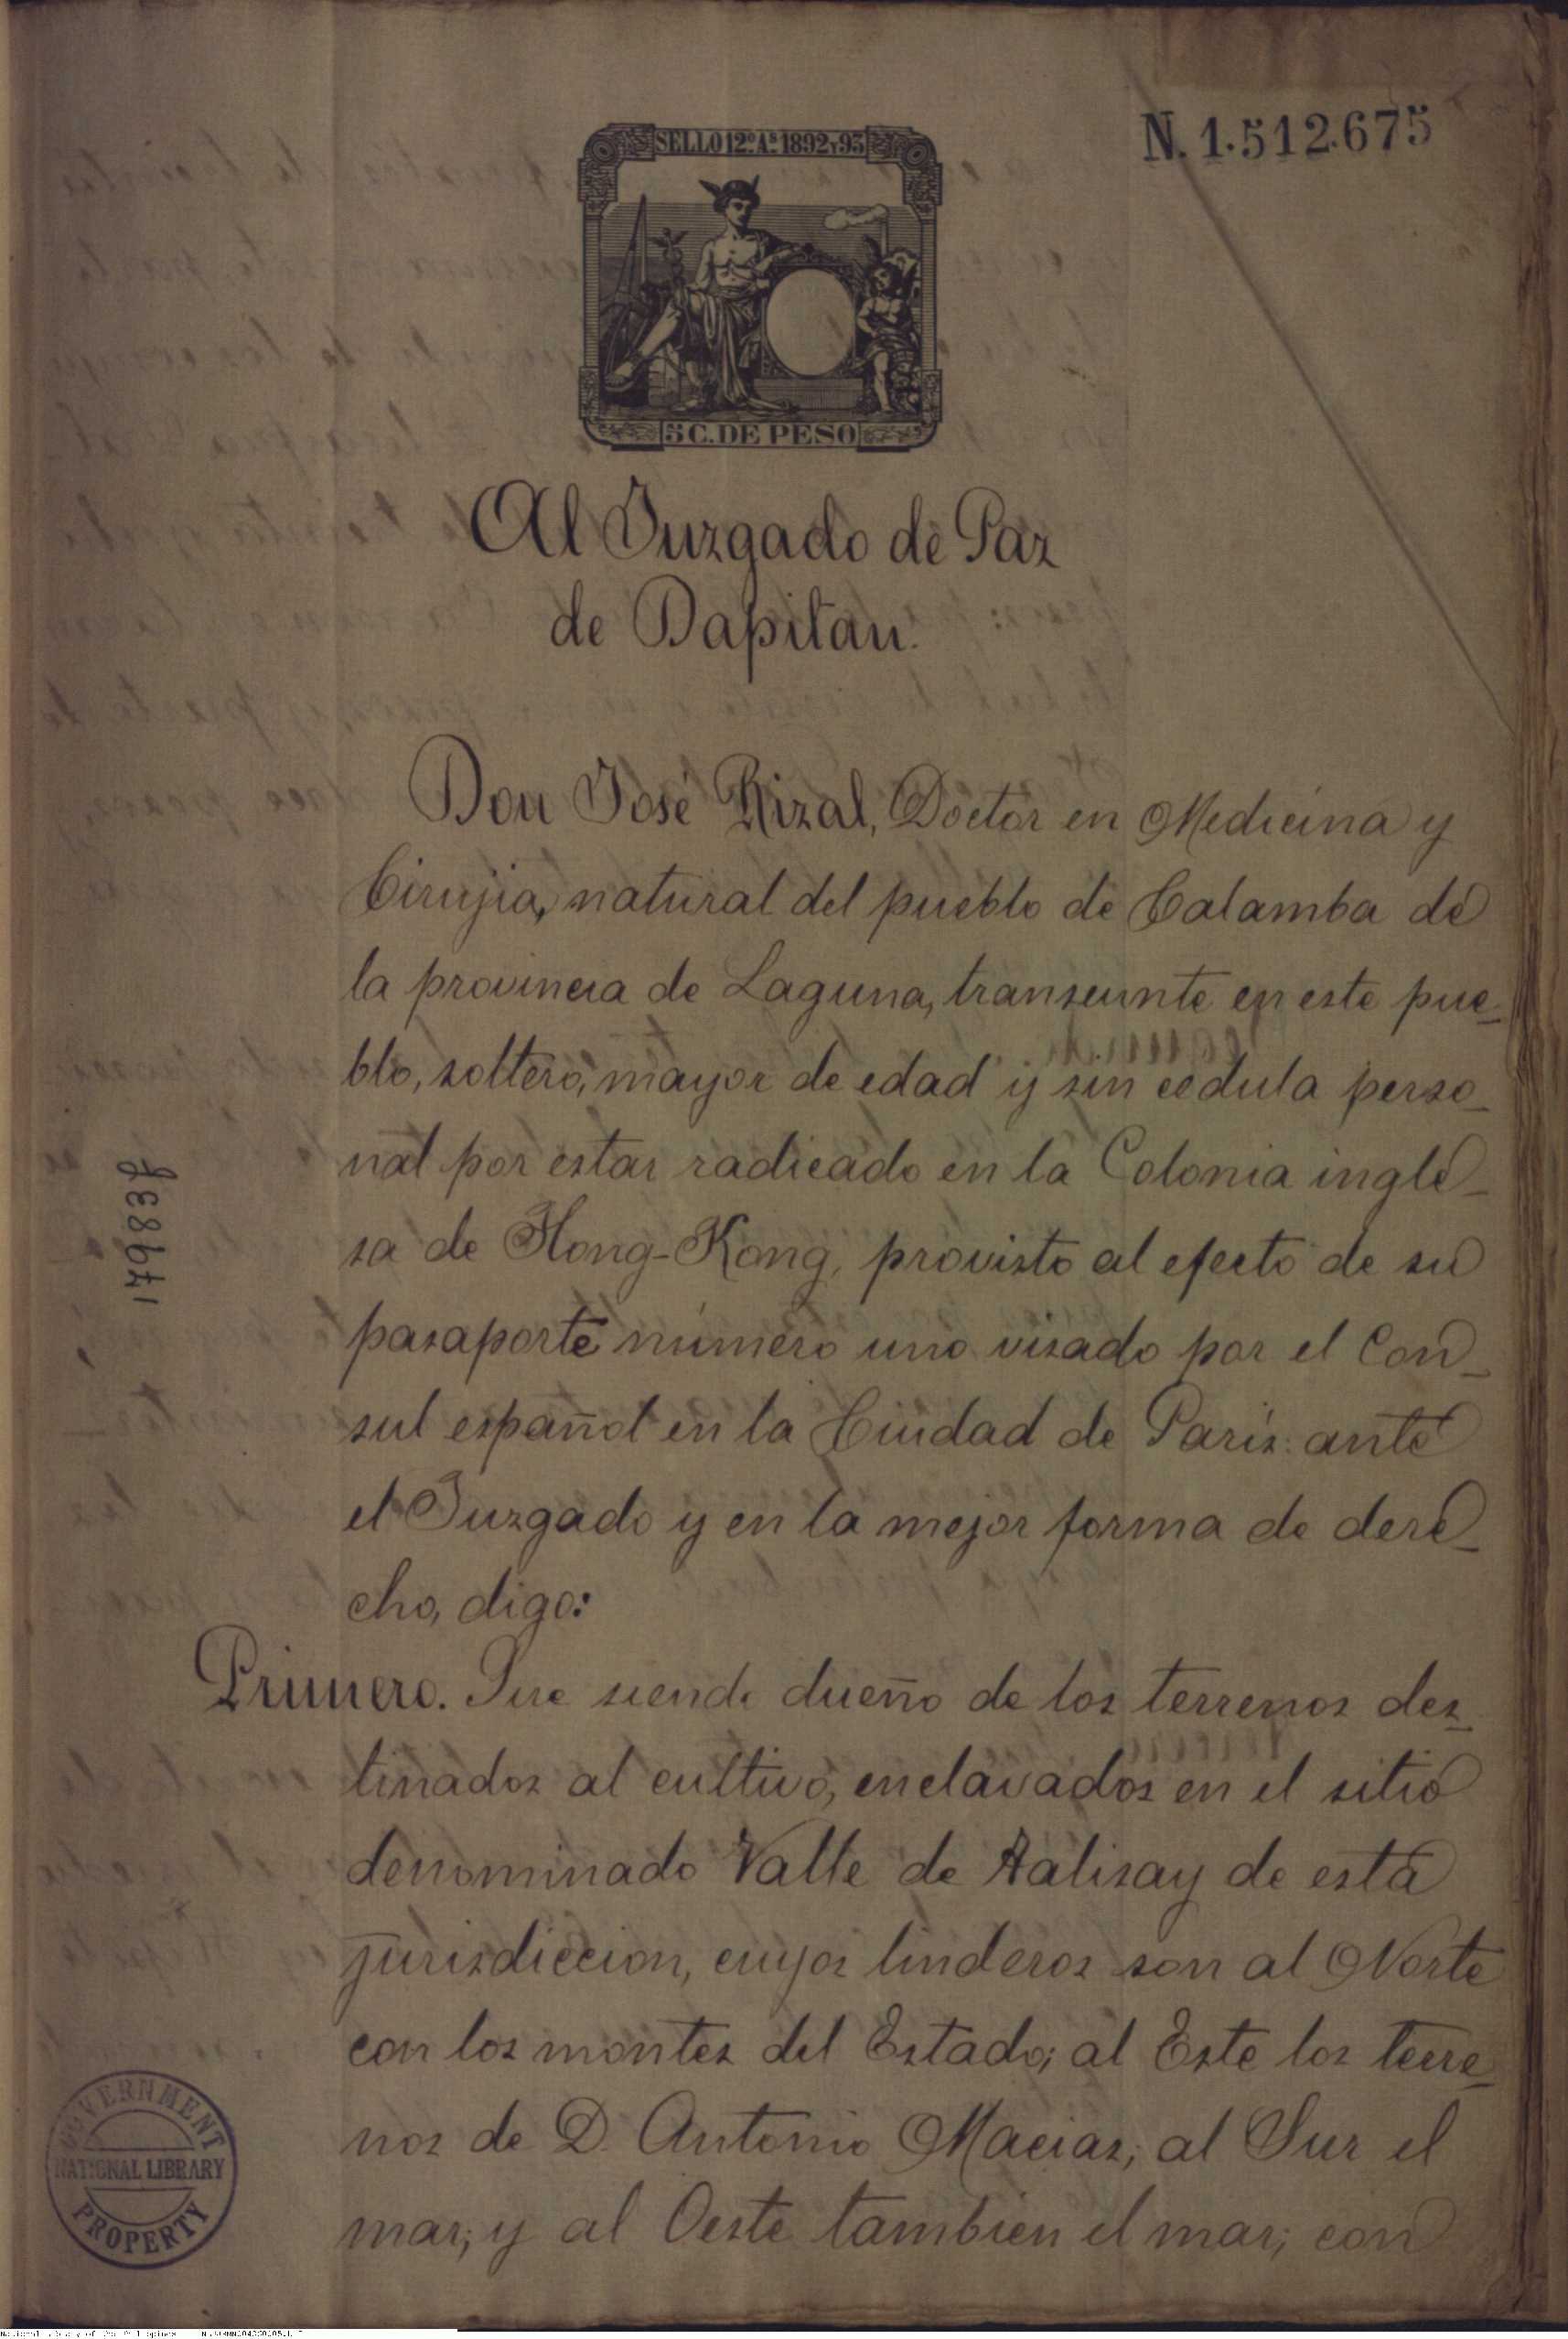 N. 1.512.675
SELLO 12º Aˢ 1892 Y 93
5 C. DE PESO
Al Juzgado de Paz
de Dapitan.
Don José Rizal, Doctor en Medicina y
Cirujia, natural del pueblo de Calamba de
la provincia de Laguna, transeunte en este pue-
blo, soltero, mayor de edad y sin cedula perso-
nal por estar radicado en la Colonia ingle-
sa de Hong-Kong, provisto al efecto de su
pasaporte número uno visado por el Con-
sul español en la Ciudad de París: ante
el Juzgado y en la mejor forma de dere-
cho, digo:
Primero. Que siendo dueño de los terrenos des-
tinados al cultivo, enclavados en el sitio
denominado Valle de Talisay de esta
jurisdiccion, cuyos linderos son al Norte
con los montes del Estado; al Este los terre-
nos de D. Antonio Macias; al Sur el
mar; y al Oeste tambien el mar; con
GOVERNMENT
NATIONAL LIBRARY
PROPERTY